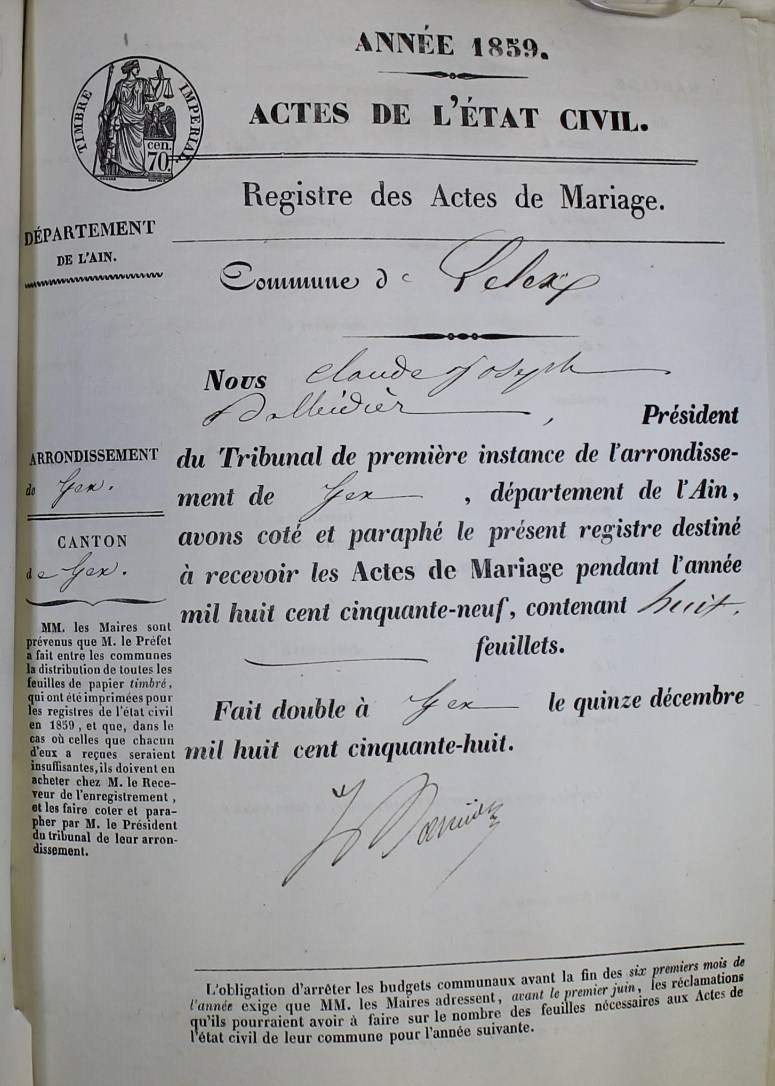 ANNÉE 1859.
ACTES DE L'ÉTAT CIVIL.
TIMBRE IMPERIAL
cen.
70
Registre des Actes de Mariage.
DÉPARTEMENT
DE L'AIN.
Commune de Lelex
Nous Claude Joseph
, Président
du Tribunal de première instance de l'arrondisse-
ment de Gex , département de l'Ain,
avons coté et paraphé le présent registre destiné
à recevoir les Actes de Mariage pendant l'année
mil huit cent cinquante-neuf, contenant huit.
feuillets.
Fait double à Gex le quinze décembre
mil huit cent cinquante-huit.
ARRONDISSEMENT
de Gex.
CANTON
de Gex.
MM. les Maires sont
prévenus que M. le Préfet
a fait entre les communes
la distribution de toutes les
feuilles de papier timbré,
qui ont été imprimées pour
les registres de l'état civil
en 1859, et que, dans le
cas où celles que chacun
d'eux a reçues seraient
insuffisantes, ils doivent en
acheter chez M. le Rece-
veur de l'enregistrement,
et les faire coter et para-
pher par M. le Président
du tribunal de leur arron-
dissement.
L'obligation d'arrêter les budgets communaux avant la fin des six premiers mois de
l'année exige que MM. les Maires adressent, avant le premier juin, les réclamations
qu'ils pourraient avoir à faire sur le nombre des feuilles nécessaires aux Actes de
l'état civil de leur commune pour l'année suivante.